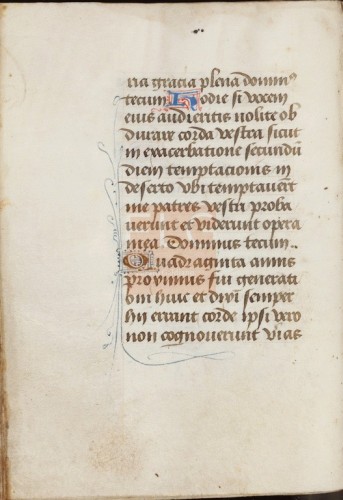 ria gracia plena dominꝰ
tecum Hodie si vocem
eius audieritis nolite ob
durare corda vestra sicut
in exacerbatione secundū
diem temptacionis in
deserto vbi temptauert̄
me patres vestri proba
uerunt et viderunt opera
mea Dominus tecum.
Quadraginta annis
proximus fui generati
oni huic et dixi semper
hii errant corde ipsi vero
non cognouerunt vias